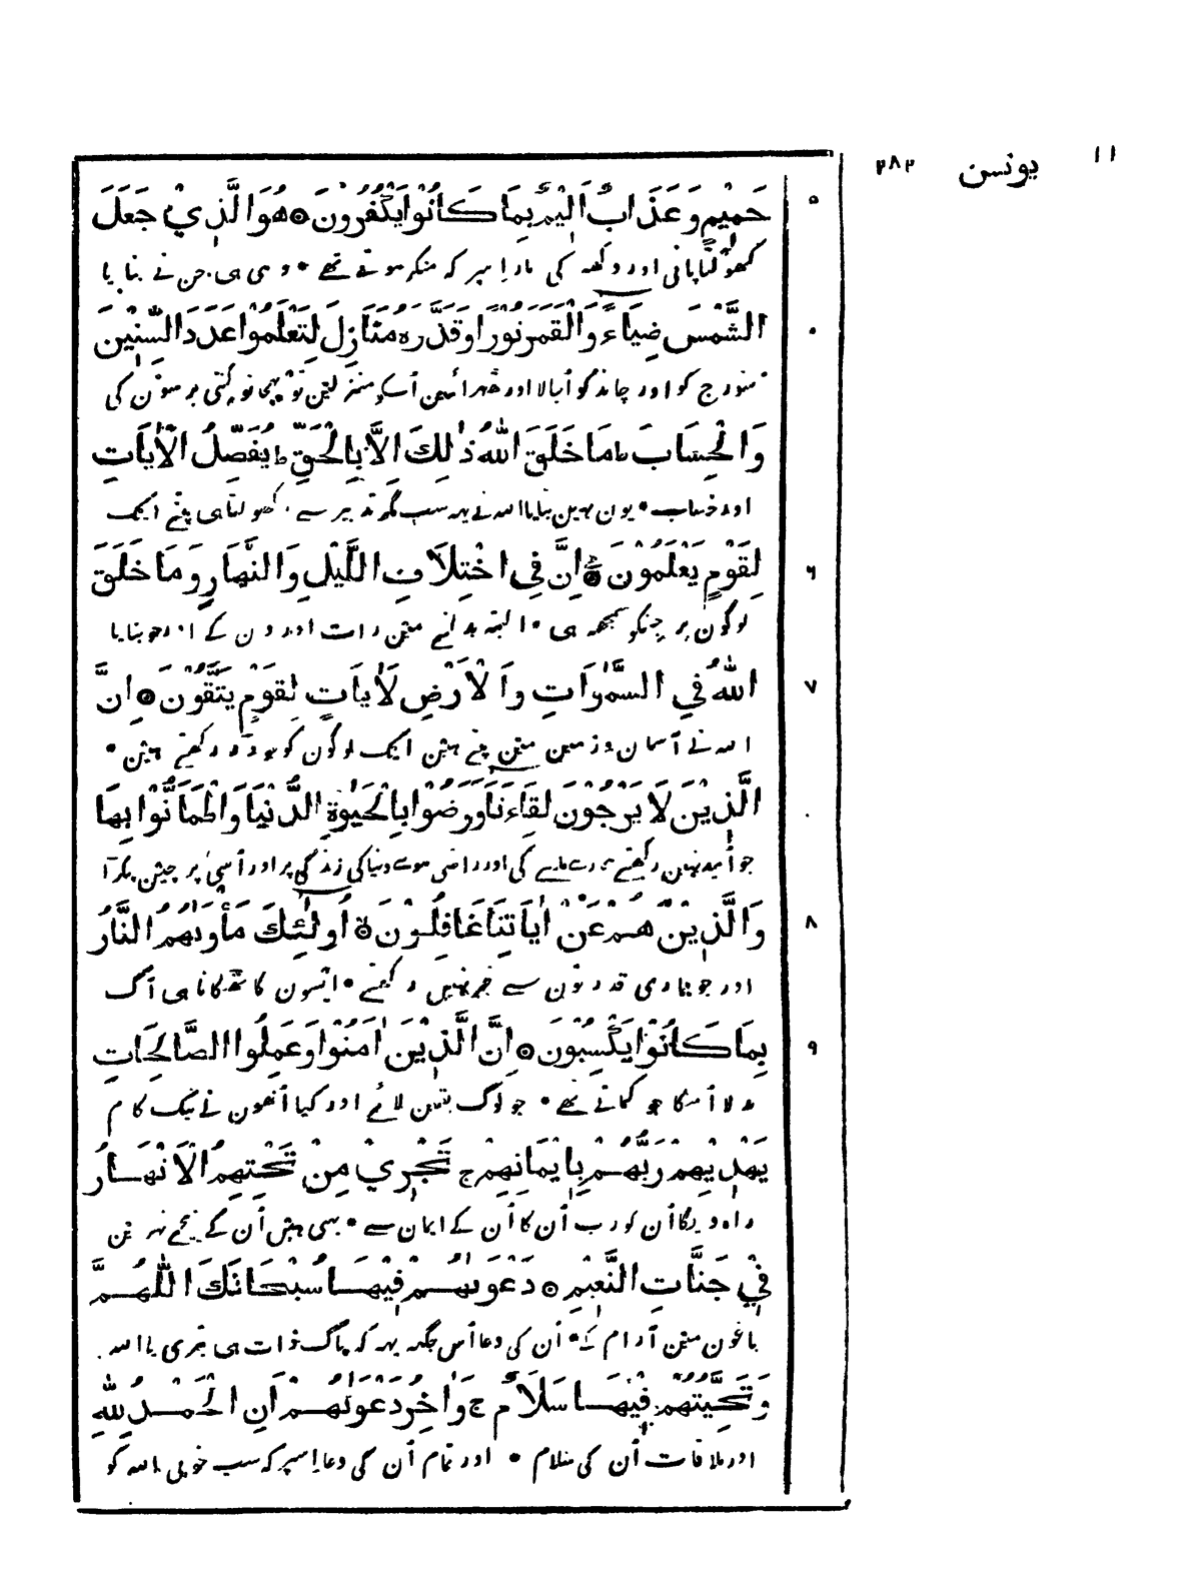 ١١ يونس ٢٨٢
حَمِيْمٍ وَعَذَابٌ اَلِيْمٌ بِمَا كَانُوْا يَكْفُرُوْنَ ۞ هُوَ الَّذِيْ جَعَلَ ٥
کھولتا پانی اور دکھہ کی مار اسپر کہ منکر ہوتے تھے • وہی ہی جن نے بنایا
الشَّمْسَ ضِيَاءً وَالْقَمَرَ نُوْرًا وَقَدَّرَهُ مَنَازِلَ لِتَعْلَمُوْا عَدَدَ السِّنِيْنَ
سورج کو اور چاند کو اُجالا اور ٹھہرائین اُسکو منزلین تو پہچانو گنتی برسون کی
وَالْحِسَابَ ط مَا خَلَقَ اللّٰهُ ذٰلِكَ اِلَّا بِالْحَقِّ ط يُفَصِّلُ الْاٰيَاتِ
اور حساب • یون نہین بنایا اللہ نے یہہ سب مگر تدبیر سے کھولتا ہی پتے ایک
لِقَوْمٍ يَعْلَمُوْنَ ۞ اِنَّ فِي اخْتِلَافِ اللَّيْلِ وَالنَّهَارِ وَمَا خَلَقَ ٦
لوگون پر جنکو سمجھہ ہی • البتہ بدلنے مین رات اور دن کے اور جو بنایا
اللّٰهُ فِي السَّمٰوَاتِ وَالْاَرْضِ لَاٰيَاتٍ لِقَوْمٍ يَتَّقُوْنَ ۞ اِنَّ ٧
اللہ نے آسمان و زمین مین پتے ہین ایک لوگون کو جو ڈر رکھتے ہین •
الَّذِيْنَ لَا يَرْجُوْنَ لِقَاءَنَا وَرَضُوْا بِالْحَيٰوةِ الدُّنْيَا وَاطْمَأَنُّوْا بِهَا
جو اُمید نہین رکھتے ہمارے ملنے کی اور راضی ہوے دنیا کی زندگی پر اور اُسی پر چین پکڑا
وَالَّذِيْنَ هُمْ عَنْ اٰيَاتِنَا غَافِلُوْنَ ۞ اُولٰئِكَ مَأْوٰىهُمُ النَّارُ ٨
اور جو ہماری قدرتون سے خبر نہین رکھتے • ایسون کا ٹھکانا ہی آگ
بِمَا كَانُوْا يَكْسِبُوْنَ ۞ اِنَّ الَّذِيْنَ اٰمَنُوْا وَعَمِلُوا الصَّالِحَاتِ ٩
بدلا اُسکا جو کماتے تھے • جو لوگ یقین لائے اور کیا اُنھون نے نیک کام
يَهْدِيْهِمْ رَبُّهُمْ بِاِيْمَانِهِمْ ج تَجْرِيْ مِنْ تَحْتِهِمُ الْاَنْهَارُ
راہ دیگا اُن کو رب اُن کا اُن کے ایمان سے • بہتی ہین اُن کے نیچے نہرین
فِيْ جَنَّاتِ النَّعِيْمِ ۞ دَعْوٰىهُمْ فِيْهَا سُبْحَانَكَ اللّٰهُمَّ
باغون مین آرام کے • اُن کی دعا اُس جگہ یہہ کہ پاک ذات ہی تیری یا اللہ
وَتَحِيَّتُهُمْ فِيْهَا سَلَامٌ ج وَاٰخِرُ دَعْوٰىهُمْ اَنِ الْحَمْدُ لِلّٰهِ
اور ملاقات اُن کی سلام • اور تمام اُن کی دعا اسپر کہ سب خوبی اللہ کو